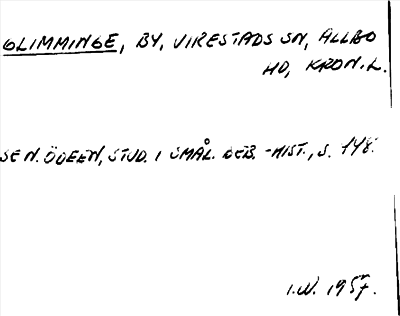 GLIMMINGE, BY, VIRESTADS SN, ALLBO
HD, KRON.L.
SE N. ÖDEEN, STUD. I SMÅL. BEB.-HIST., S. 148.
I.W. 1957.